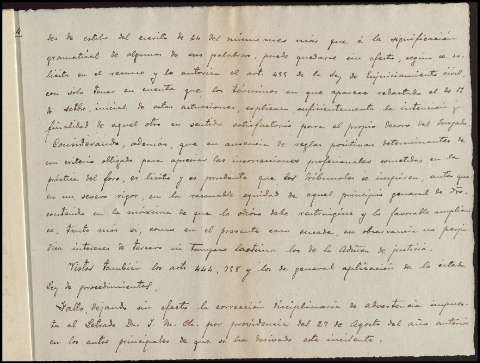 des de estilo del escrito de 24 del mismo mes más que á la significación
gramatical de algunas de sus palabras, puede quedarse sin efecto, según se so-
licita en el recurso y lo autoriza el art. 455 de la Ley de Enjuiciamiento civil,
con solo tener en cuenta que los términos en que aparece redactado el de 17
de setbre. inicial de estas actuaciones, explican suficientemente la intención y
finalidad de aquel otro en sentido satisfactorio para el propio decoro del Juzgado
Considerando, además, que en ausencia de reglas positivas determinantes de
un criterio obligado para apreciar las incorrecciones profesionales cometidas en la
práctica del foro, es lícito y es prudente que los Tribunales se inspiren, antes que
en un severo rigor, en la razonable equidad de aquel principio general de Dro.
contenido en la máxima de que lo odioso debe restringirse y lo favorable ampliar-
se, tanto más si, como en el presente caso sucede, su observancia no perju-
dica intereses de tercero ni tampoco lastima los de la Admon. de justicia.
Vistos también los arts. 444, 758 y los de general aplicación de la citada
Ley de procedimientos.
Fallo, dejando sin efecto la corrección disciplinaria de advertencia impues-
ta al Letrado Dn. J. M. Ch. por providencia del 27 de Agosto del año anterior
en los autos principales de que se ha derivado este incidente.